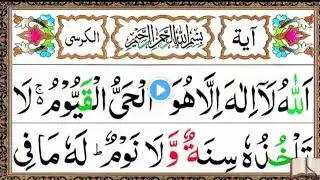 آية بِسْمِ اللهِ الرَّحْمٰنِ الرَّحِيْمِ الكرسى
اَللّٰهُ لَاۤ اِلٰهَ اِلَّا هُوَۚ اَلْحَىُّ الْقَيُّوْمُ ۚ لَا
تَاْخُذُهٗ سِنَةٌ وَّلَا نَوْمٌ ؕ لَهٗ مَا فِى